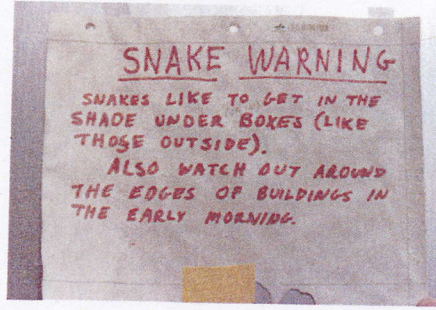 SNAKE WARNING
SNAKES LIKE TO GET IN THE
SHADE UNDER BOXES (LIKE
THOSE OUTSIDE).
ALSO WATCH OUT AROUND
THE EDGES OF BUILDINGS IN
THE EARLY MORNING.